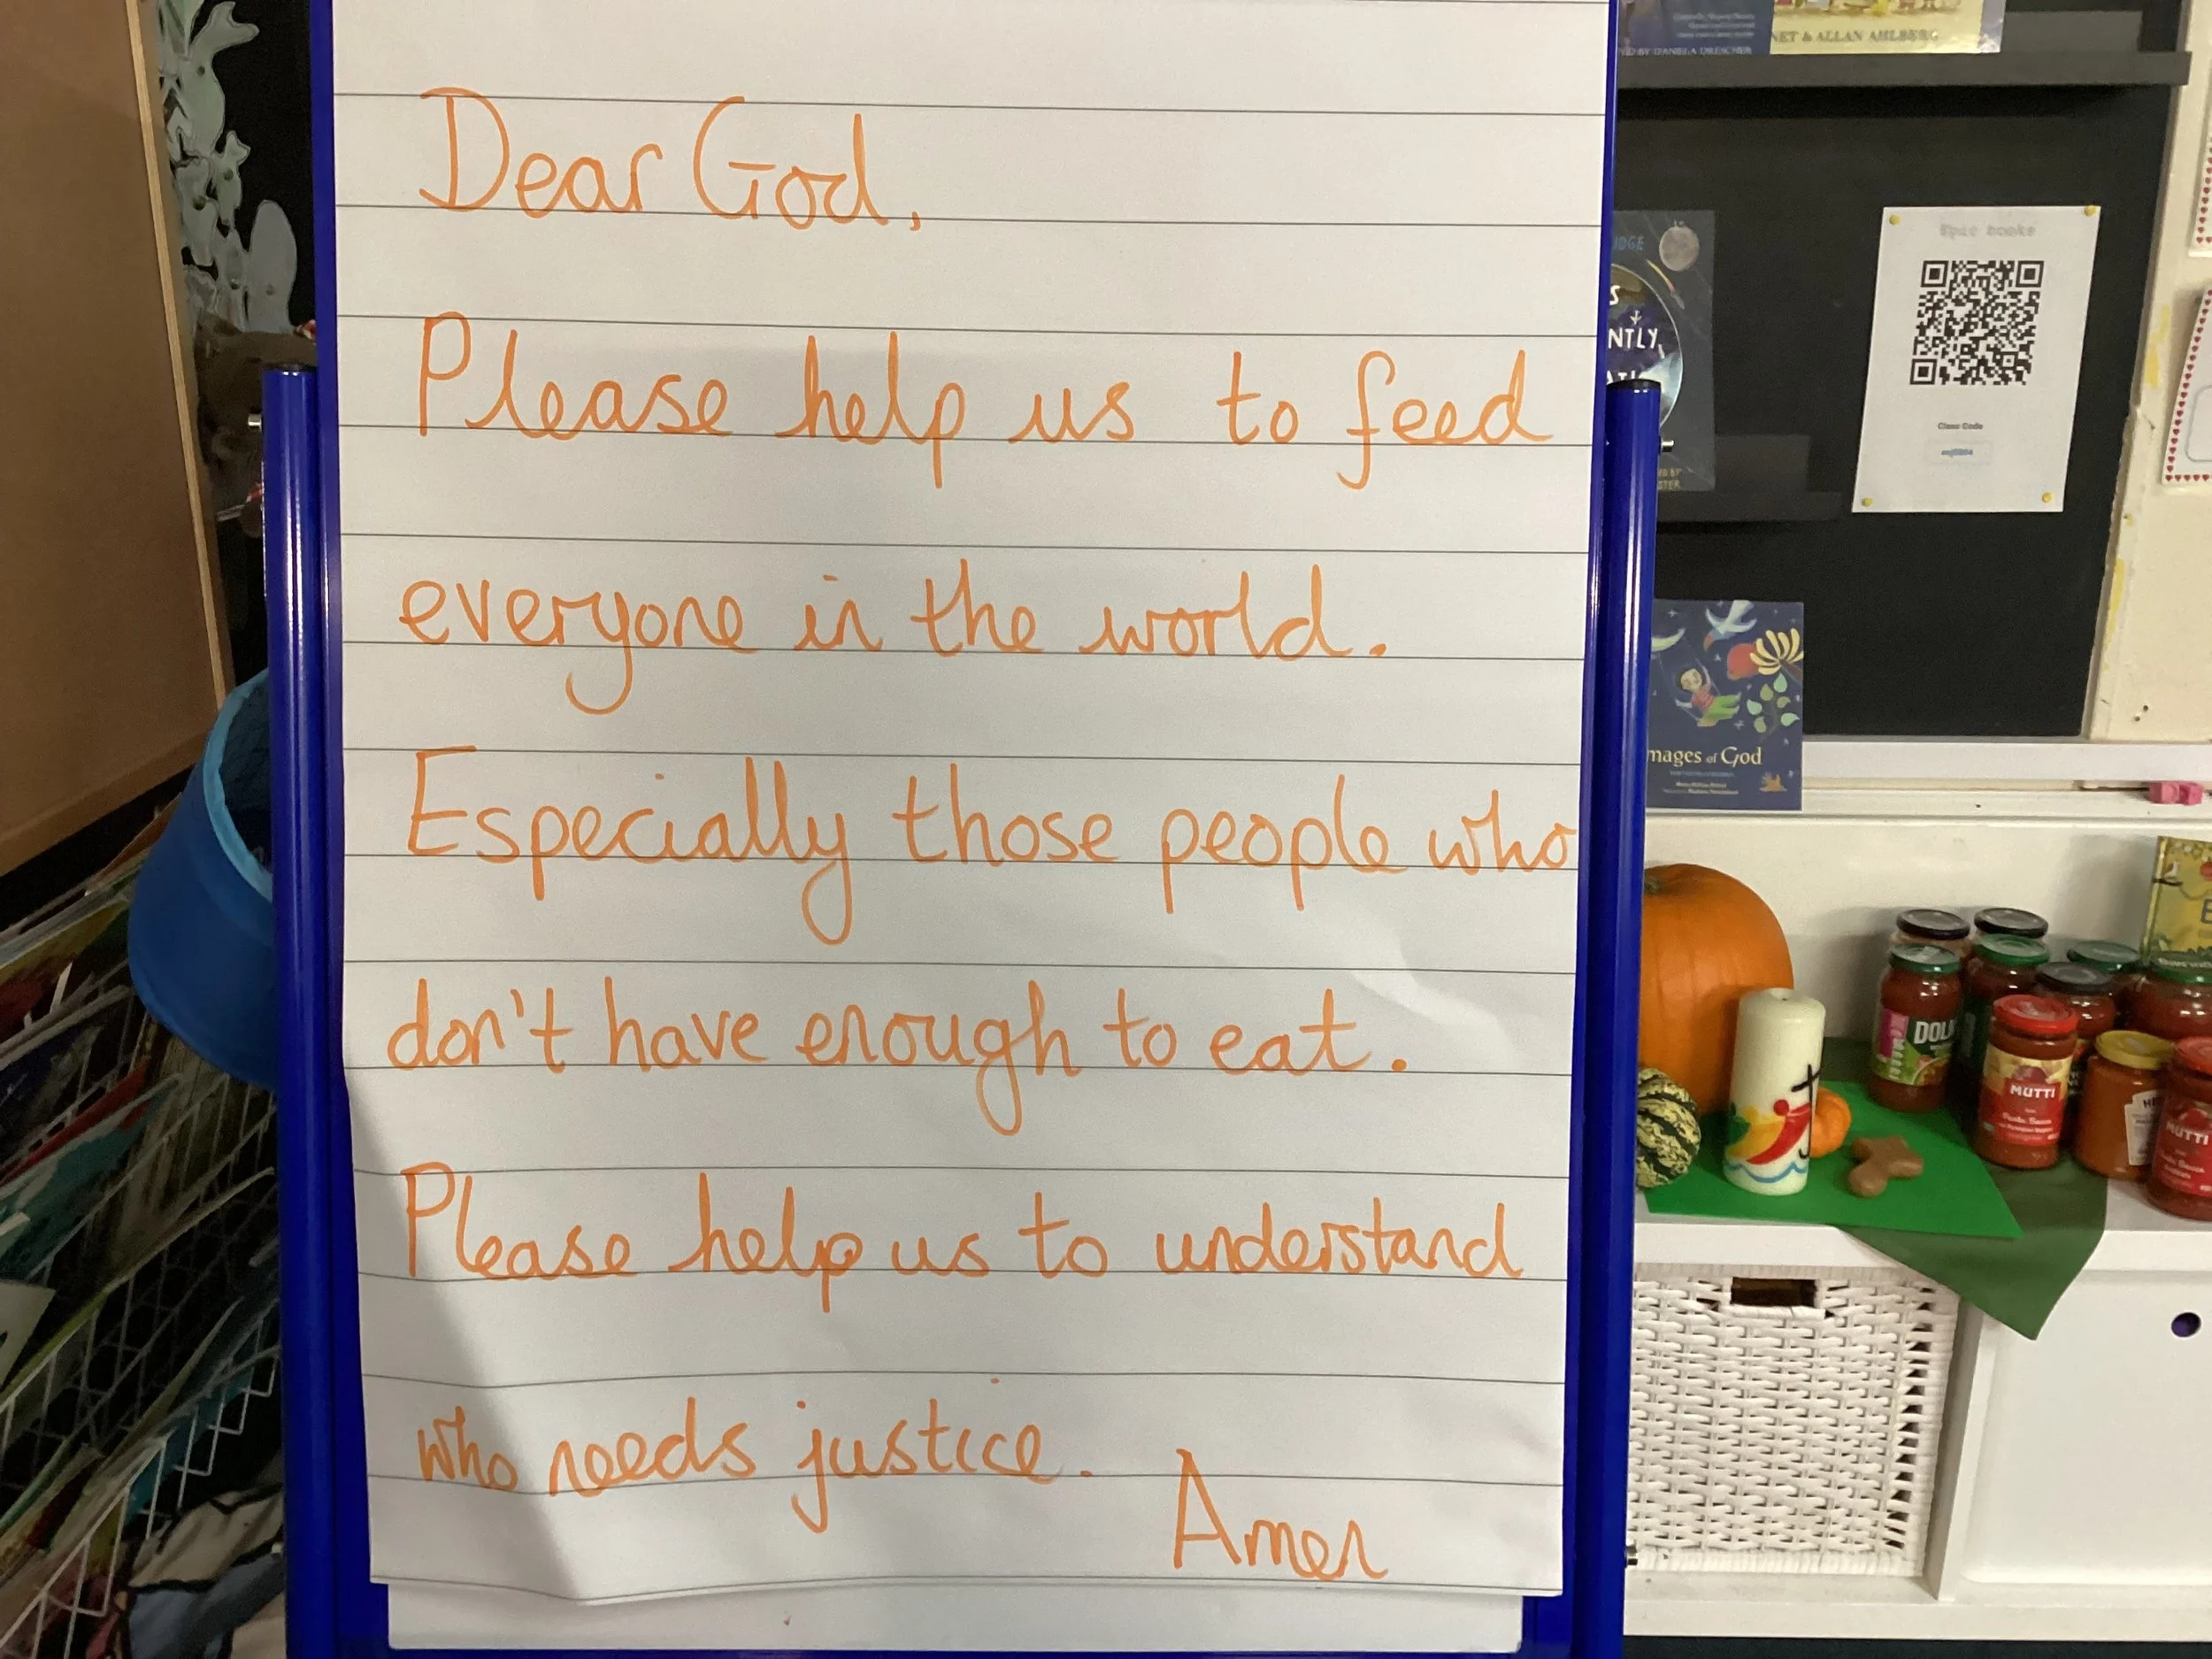 Dear God,
Please help us to feed
everyone in the world.
Especially those people who
don't have enough to eat.
Please help us to understand
who needs justice.
Amen
NET & ALLAN AHLBERG
BY DANIELA DRESCHER
Epic books
Class Code
IDGE
NTLY
mages of God
DOL
MUTTI
Pasta Sauce
MUTTI
Pasta Sauce